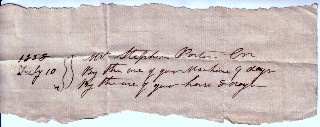 1838 Mr Stephen Porter Cr
July 10 By the use of your Machine 9 days
" By the use of your horse 8 days